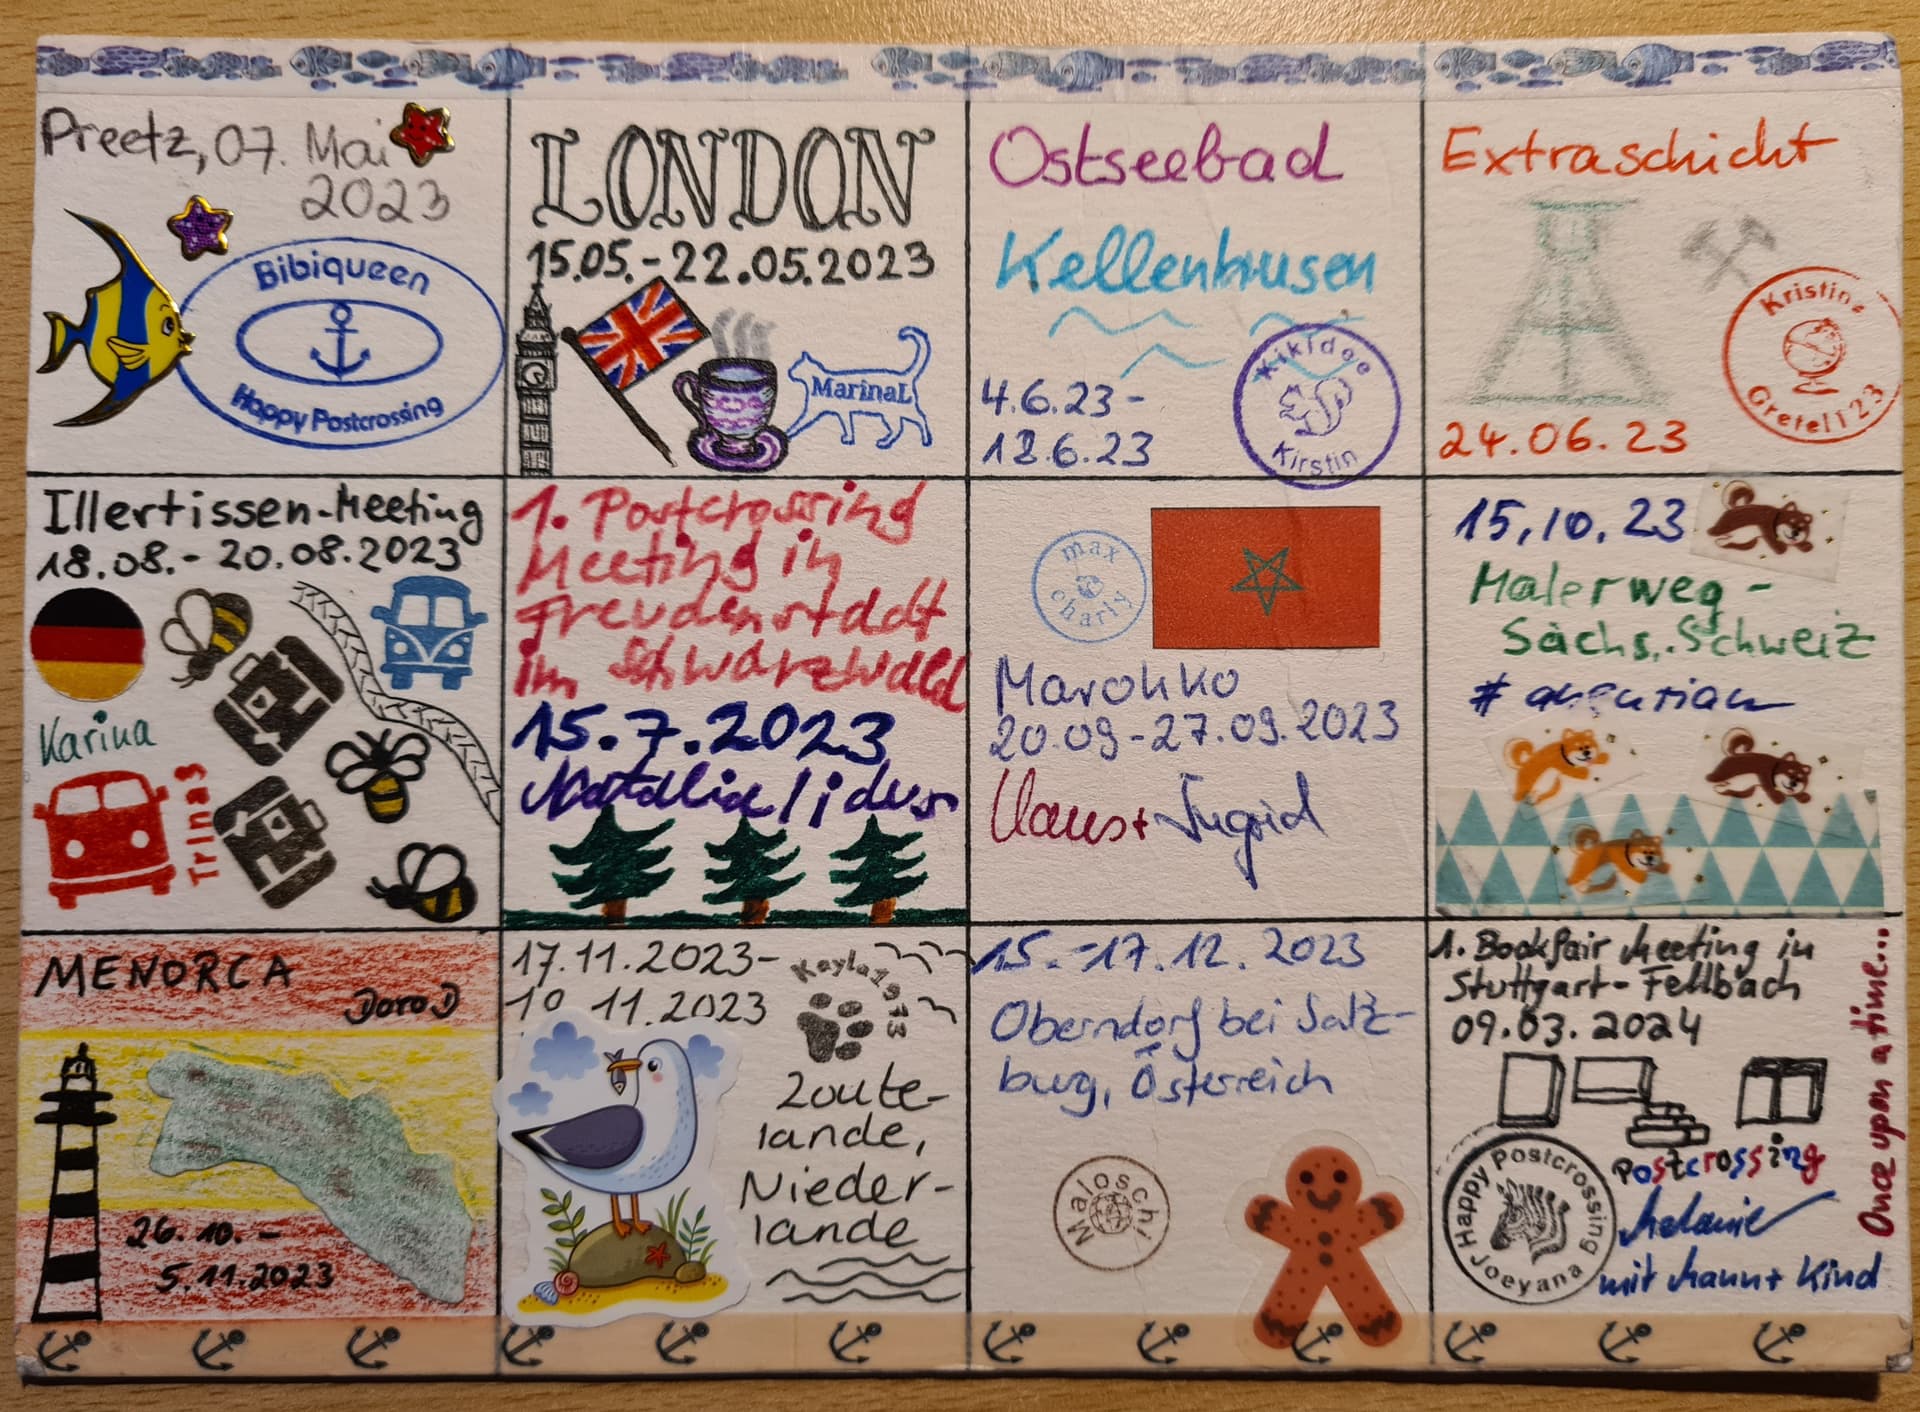 Preetz, 07. Mai
2023
Bibiqueen
Happy Postcrossing
LONDON
15.05.-22.05.2023
MarinaL
Ostseebad
Kellenhusen
4.6.23-
18.6.23
Kikidoe
Kirstin
Extraschicht
Kristin
Gretel123
24.06.23
Illertissen-Meeting
18.08.-20.08.2023
Karina
Trina3
1. Postcrossing
Meeting in
Freudenstadt
im Schwarzwald
15.7.2023
Natalia/idus
max
charly
Marokko
20.09-27.09.2023
Claus + Ingrid
15.10.23
Malerweg-
Sächs. Schweiz
#
MENORCA
DoroD
26.10.-
5.11.2023
17.11.2023-
19.11.2023
Kayla1973
Zoute-
lande,
Nieder-
lande
15.-17.12.2023
Oberndorf bei Salz-
burg, Österreich
Maloschi
1. Bookfair Meeting in
Stuttgart-Fellbach
09.03.2024
Once upon a time...
Postcrossing
Happy Postcrossing
Joeyana
Melanie
mit Mann + Kind